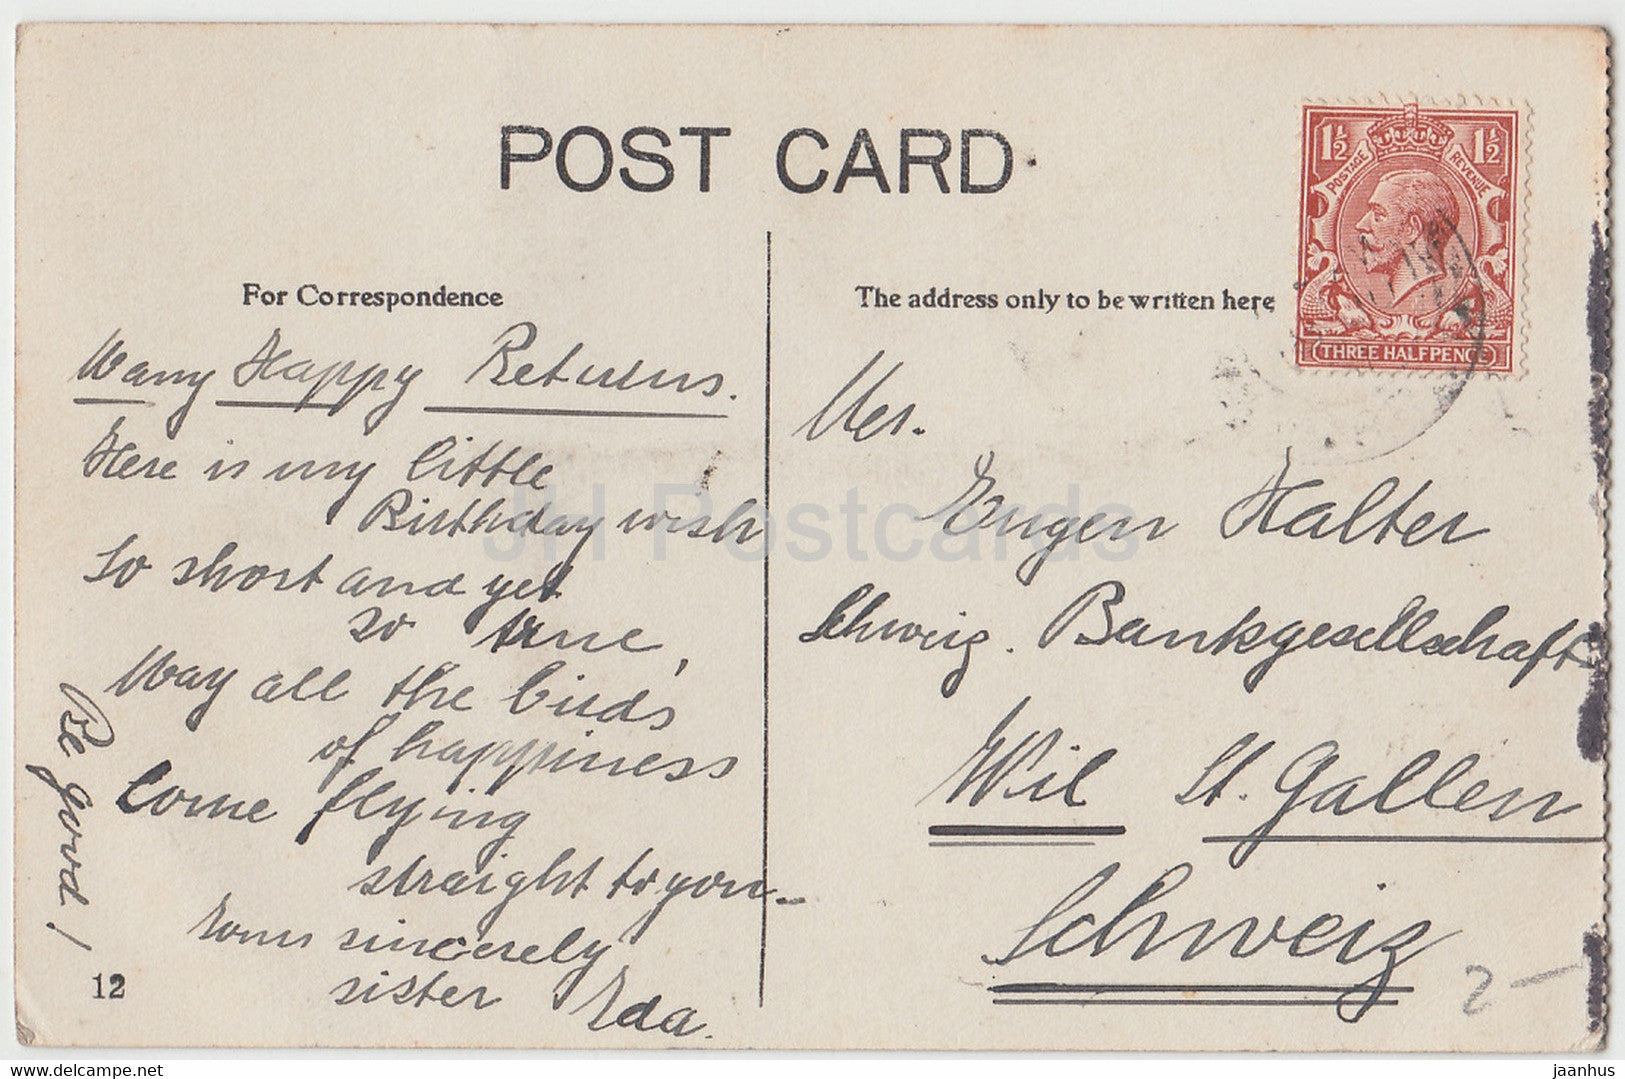 POST CARD
For Correspondence
Many Happy Returns.
Here is my little
Birthday wish
So short and yet
so true,
May all the birds
of happiness
Come flying
straight to you–
Yours sincerely
sister Ida.
Be good!
12
The address only to be written here
1½ 1½
POSTAGE REVENUE
THREE HALFPENCE
Eugen Halter
Schweiz. Bankgesellschaft
Wil St. Gallen
Schweiz
2-
JH Postcards
hip.market
jaanhus